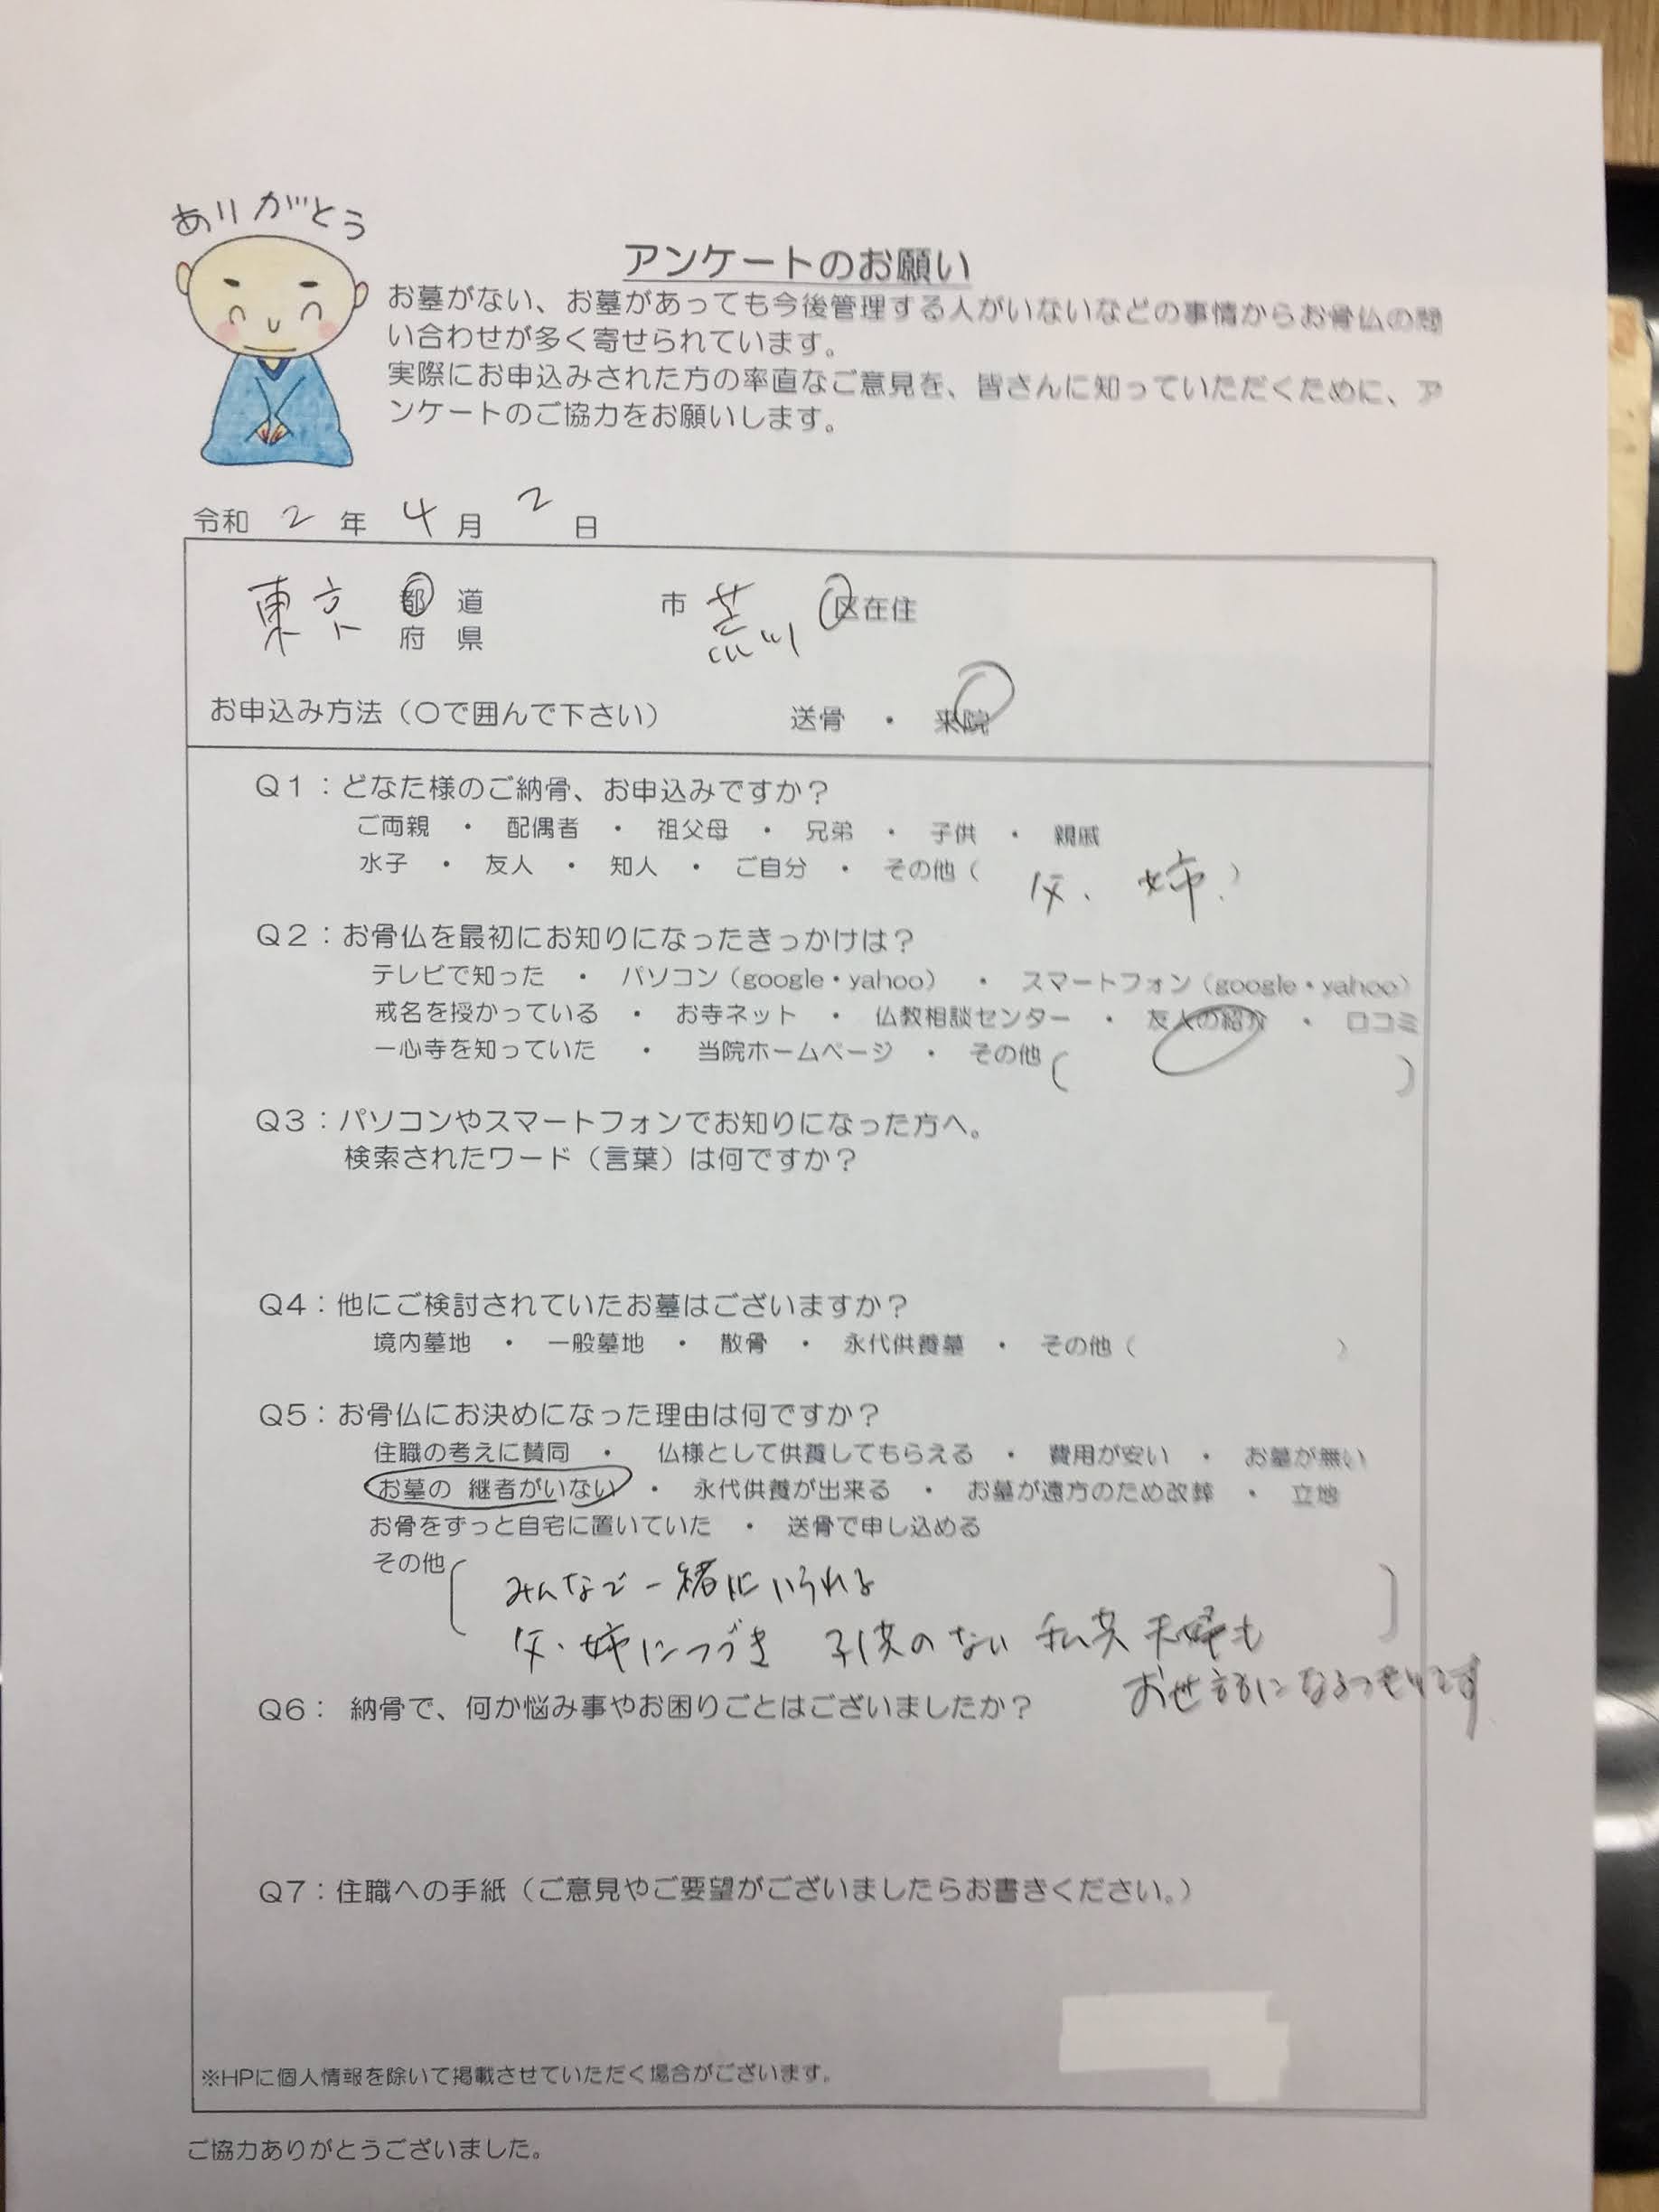 ありがとう
アンケートのお願い
お墓がない、お墓があっても今後管理する人がいないなどの事情からお骨仏の問
い合わせが多く寄せられています。
実際にお申込みされた方の率直なご意見を、皆さんに知っていただくために、ア
ンケートのご協力をお願いします。
令和 2 年 4 月 2 日
東京 都 道 市 荒川 区在住
府 県
お申込み方法（〇で囲んで下さい） 送骨 ・ 来院
Q1：どなた様のご納骨、お申込みですか？
ご両親 ・ 配偶者 ・ 祖父母 ・ 兄弟 ・ 子供 ・ 親戚
水子 ・ 友人 ・ 知人 ・ ご自分 ・ その他（ 父、姉、）
Q2：お骨仏を最初にお知りになったきっかけは？
テレビで知った ・ パソコン（google・yahoo） ・ スマートフォン（google・yahoo）
戒名を授かっている ・ お寺ネット ・ 仏教相談センター ・ 友人の紹介 ・ 口コミ
一心寺を知っていた ・ 当院ホームページ ・ その他（ ）
Q3：パソコンやスマートフォンでお知りになった方へ。
検索されたワード（言葉）は何ですか？
Q4：他にご検討されていたお墓はございますか？
境内墓地 ・ 一般墓地 ・ 散骨 ・ 永代供養墓 ・ その他（ ）
Q5：お骨仏にお決めになった理由は何ですか？
住職の考えに賛同 ・ 仏様として供養してもらえる ・ 費用が安い ・ お墓が無い
お墓の 継者がいない ・ 永代供養が出来る ・ お墓が遠方のため改葬 ・ 立地
お骨をずっと自宅に置いていた ・ 送骨で申し込める
その他（ みんなで一緒にいられる ）
父、姉につづき 子供のない 私共夫婦も
お世話になるつもりです
Q6： 納骨で、何か悩み事やお困りごとはございましたか？
Q7：住職への手紙（ご意見やご要望がございましたらお書きください。）
※HPに個人情報を除いて掲載させていただく場合がございます。
ご協力ありがとうございました。